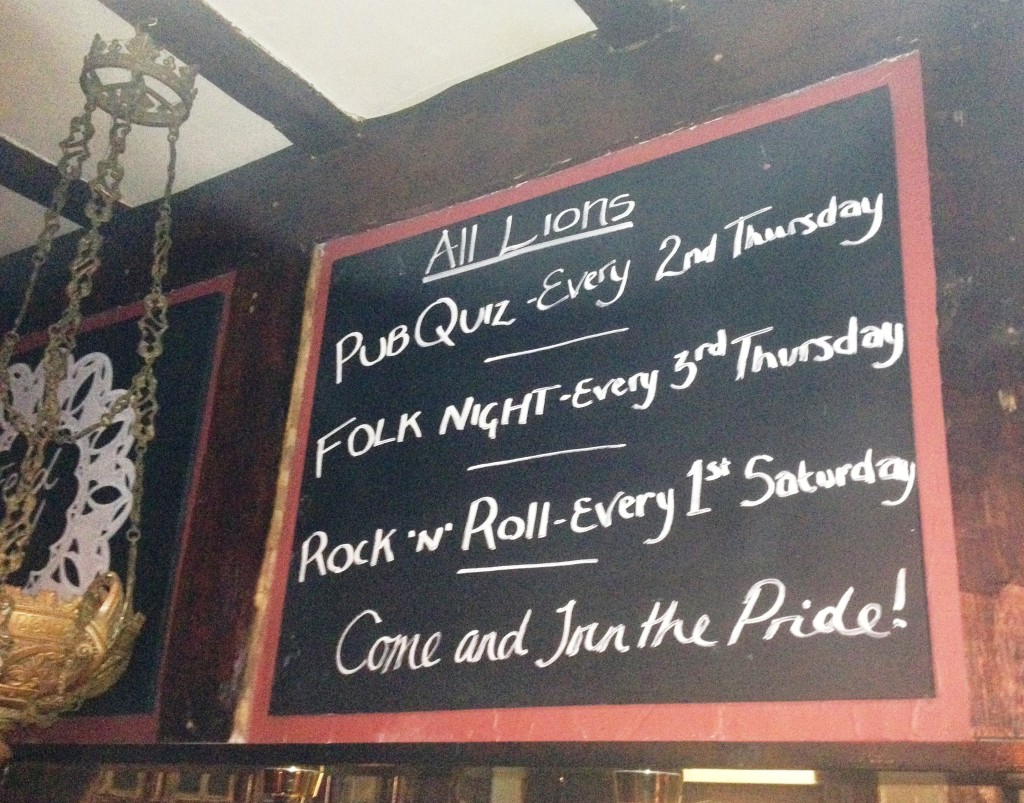 All Lions
PUB QUIZ - Every 2nd Thursday
FOLK NIGHT - Every 3rd Thursday
ROCK 'N' Roll - Every 1st Saturday
Come and Join the Pride!